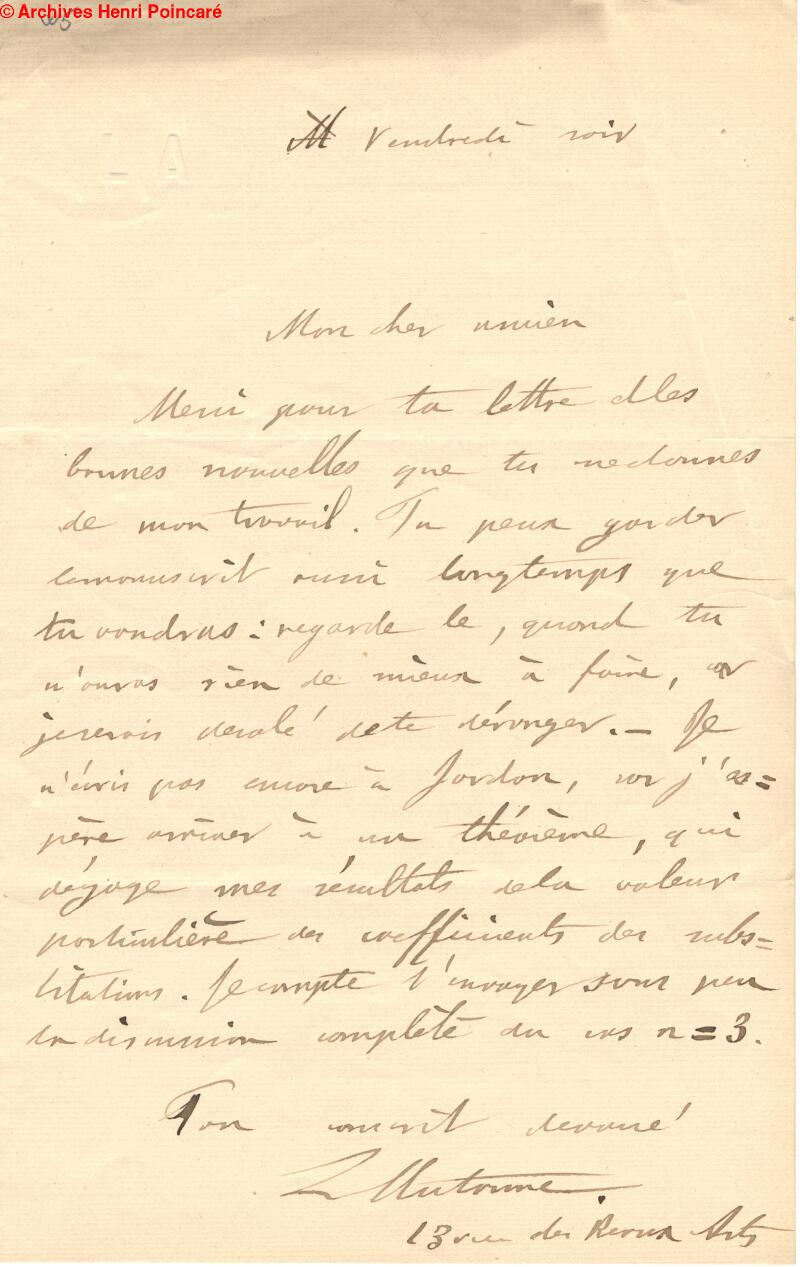 © Archives Henri Poincaré
Vendredi soir
Mon cher ancien
Merci pour ta lettre & les
bonnes nouvelles que tu me donnes
de mon travail. Tu peux garder
le manuscrit aussi longtemps que
tu voudras : regarde le, quand tu
n'auras rien de mieux à faire, car
je serais desolé de te déranger. — Je
n'écris pas encore à Jordan, car j'es=
père arriver à un théorème, qui
dégage mes résultats de la valeur
particulière des coefficients des subs=
titutions. Je compte t'envoyer sous peu
la discussion complète du cas n = 3.
Ton conscrit devoué
L Autonne.
13 rue des Beaux Arts